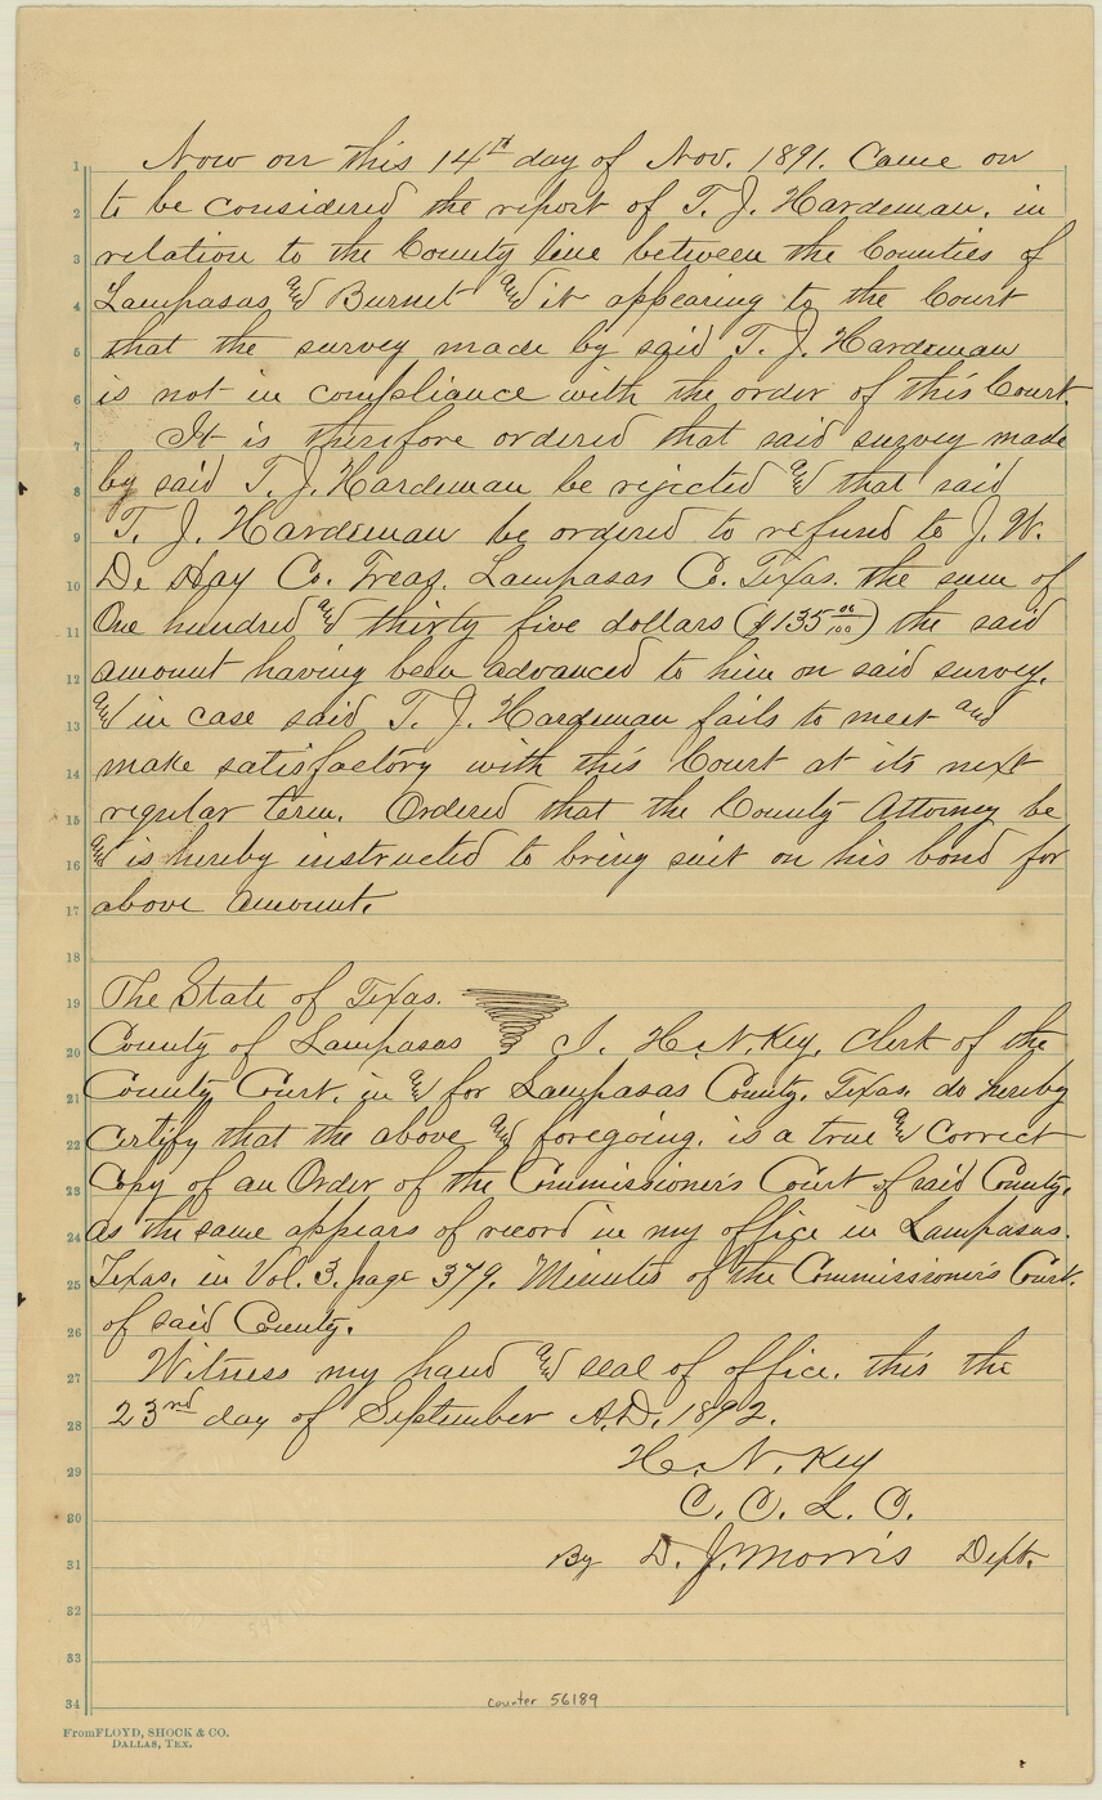 1 Now on this 14th day of Nov. 1891. Came on
2 to be considered the report of T. J. Hardeman, in
3 relation to the County line between the Counties of
4 Lampasas and Burnet and it appearing to the Court
5 that the survey made by said T. J. Hardeman
6 is not in compliance with the order of this Court.
7 It is therefore ordered that said survey made
8 by said T. J. Hardeman be rejected and that said
9 T. J. Hardeman be ordered to refund to J. W.
10 De Hay Co. Treas. Lampasas Co. Texas. the sum of
11 One hundred and thirty five dollars ($135 00/100) the said
12 amount having been advanced to him on said survey.
13 and in case said T. J. Hardeman fails to meet and
14 make satisfactory with this Court at its next
15 regular term. Ordered that the County Attorney be
16 and is hereby instructed to bring suit on his bond for
17 above amount.
18
19 The State of Texas.
20 County of Lampasas I. H. N. Key, Clerk of the
21 County Court, in and for Lampasas County, Texas, do hereby
22 Certify that the above and foregoing, is a true and Correct
23 Copy of an Order of the Commissioner's Court of said County,
24 as the same appears of record in my office in Lampasas.
25 Texas, in Vol. 3. page 379. Minutes of the Commissioner's Court.
26 of said County.
27 Witness my hand and seal of office, this the
28 23rd day of September A.D. 1892.
29 H. N. Key
30 C. C. L. C.
31 By D. J. Morris Dept.
32
33
34
counter 56189
From FLOYD, SHOCK & CO.
DALLAS, TEX.